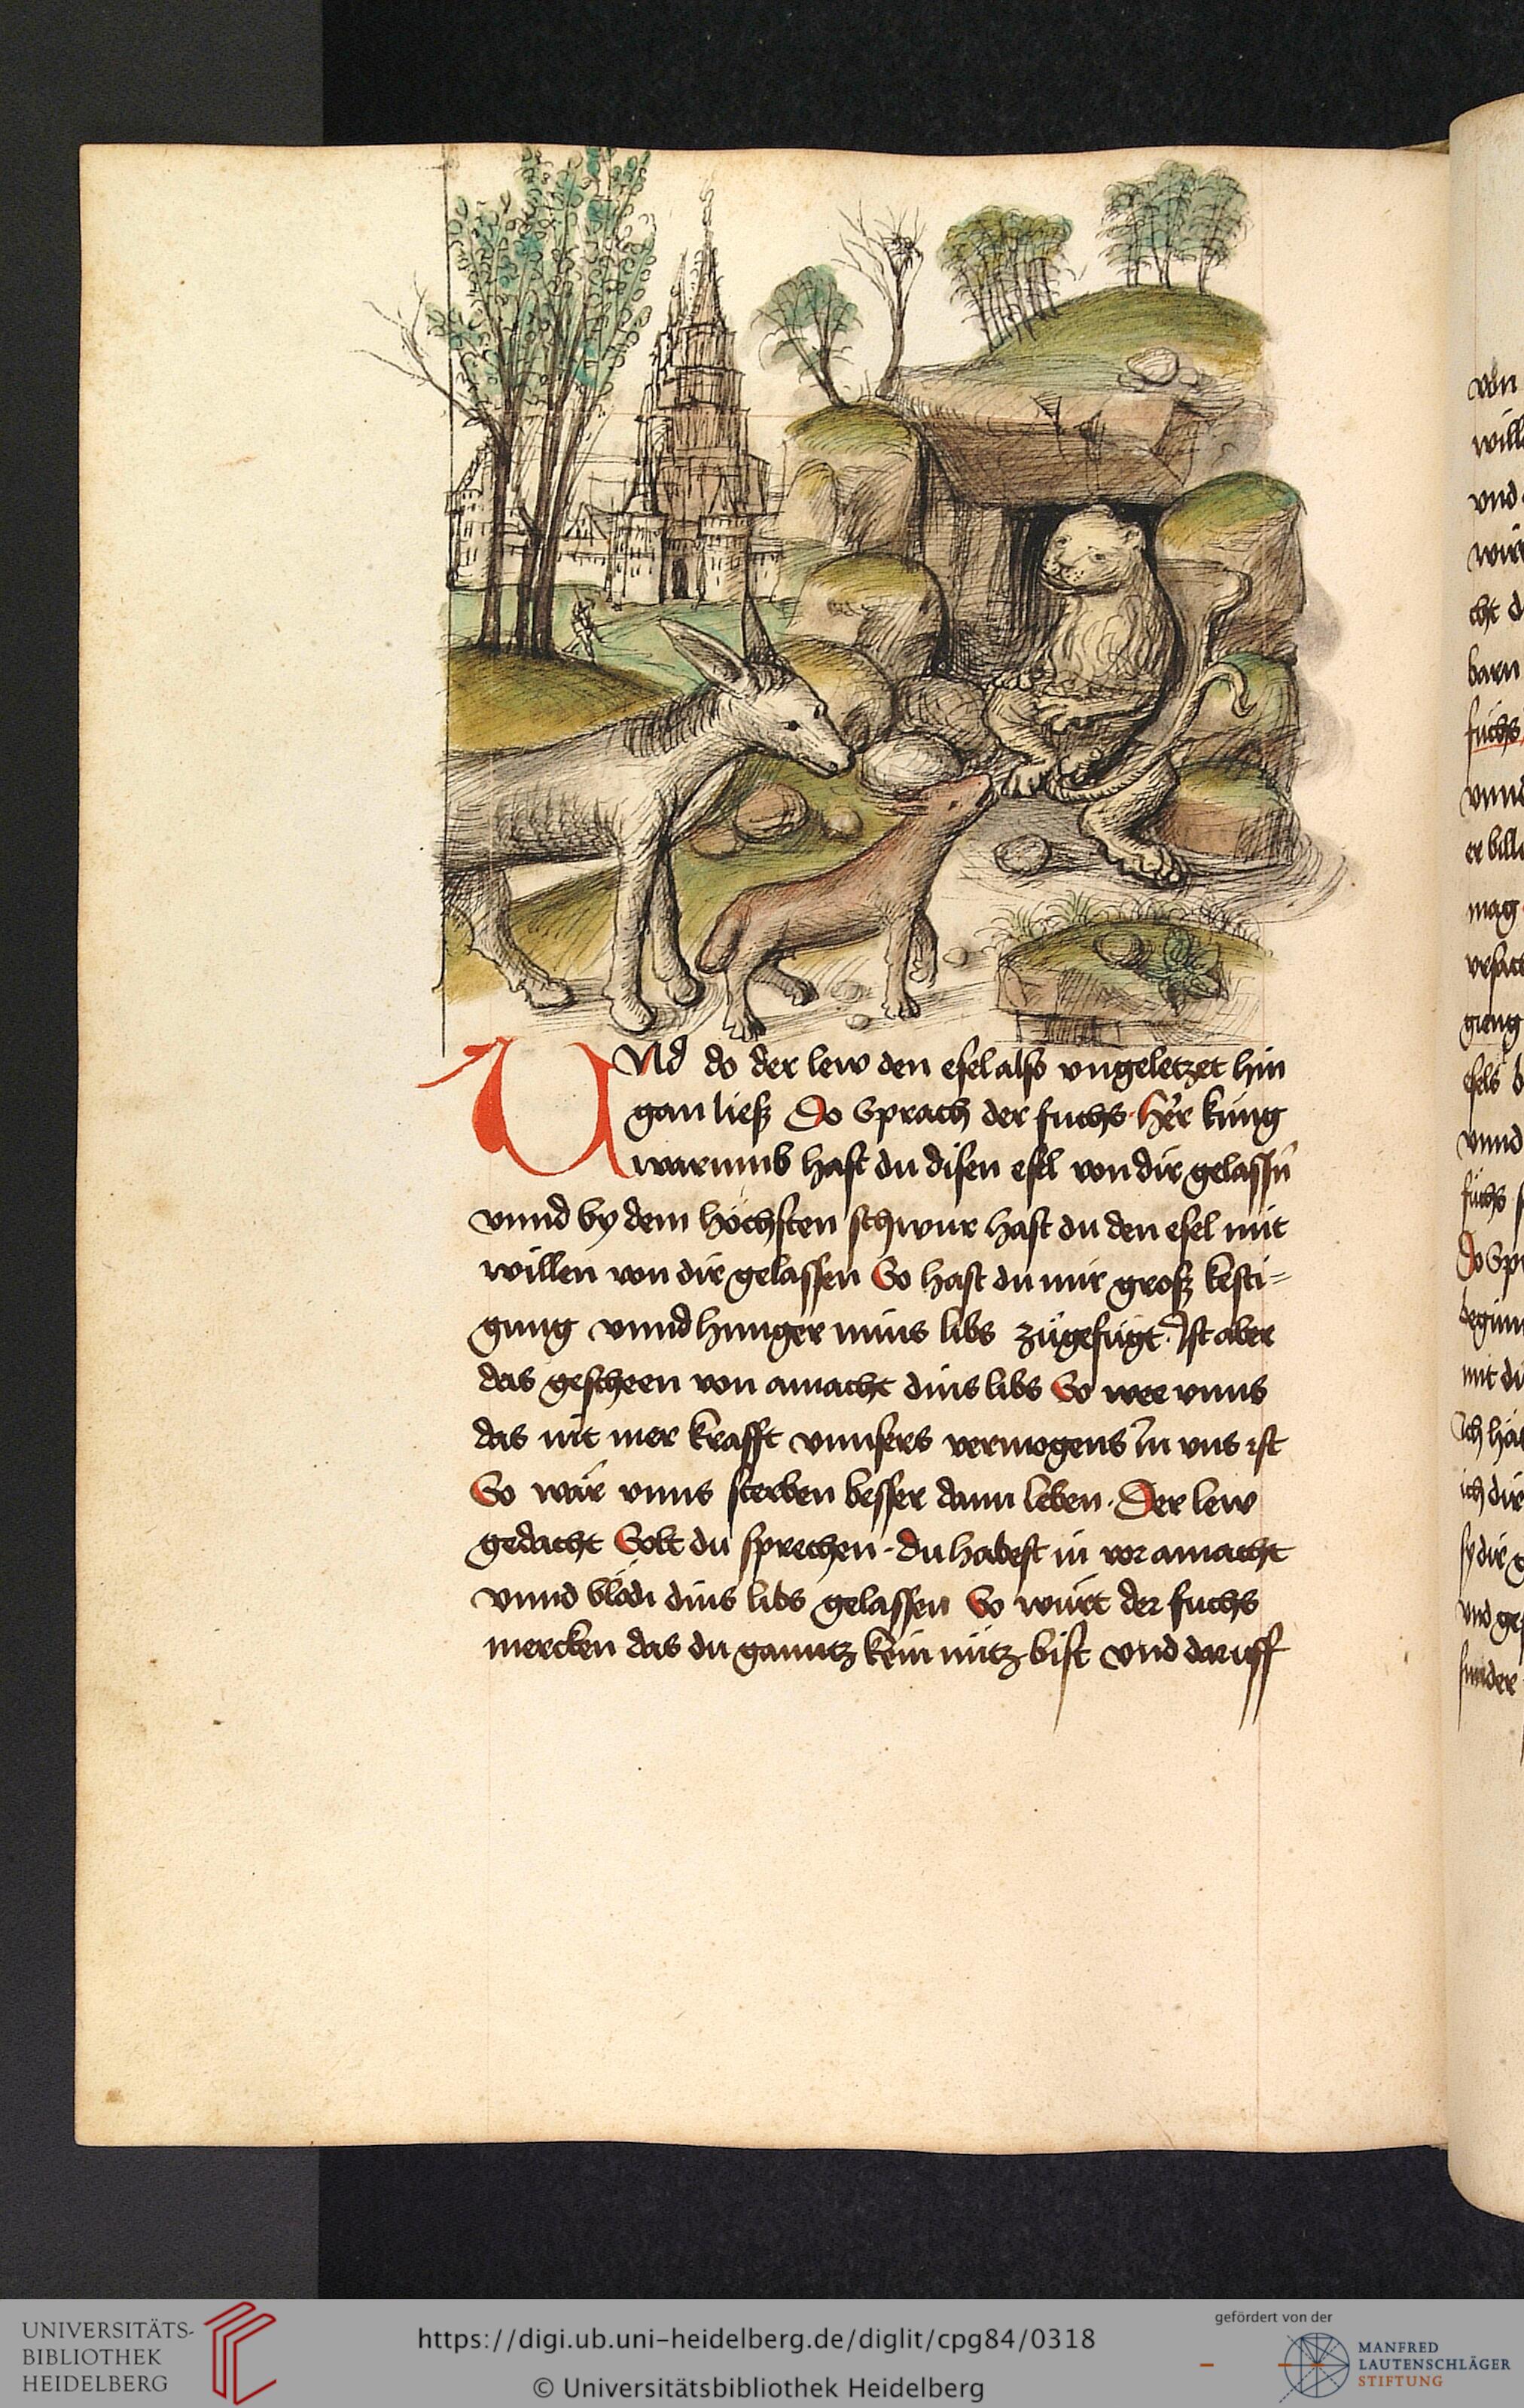 Und do der lew den esel also vngeletzet hin
gan ließ Do Sprach der fuchs · Her kúnig
warumb hast du disen esel von dir gelassen
vnnd by dem höchsten schwur hast du den esel mit
willen von dir gelassen So hast du mir groß kesti=
gung vnnd hunger mins libs zůgefúgt. Ist aber
das gescheen von amacht dins libs So wee vnns
das nit mer krafft vnnsers vermogens Jn vns ist
So wär vnns sterben besser dann leben · Der lew
gedacht Solt du sprechen · du habest in vor amacht
vnnd blödi dins libs gelassen So wúrt der fuchs
mercken das du ganntz kein nútz bist vnd daruff
von
will
vnd
cht d
barn
fúchs
vnnd
er bill
mag
vrsach
gieng
esels
vnnd
fúchs
Do Sp
begin
mit di
ich hä
ich dir
sy dir g
vnd ge
sunder
UNIVERSITÄTS-
BIBLIOTHEK
HEIDELBERG
https://digi.ub.uni-heidelberg.de/diglit/cpg84/0318
© Universitätsbibliothek Heidelberg
gefördert von der
MANFRED
LAUTENSCHLÄGER
STIFTUNG